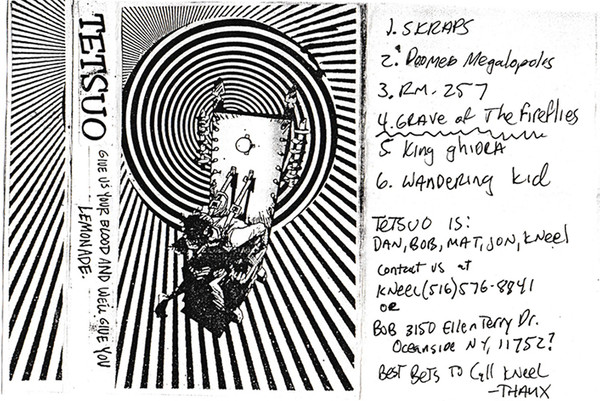 TETSUO
GIVE US YOUR BLOOD AND WE'LL GIVE YOU
LEMONADE.
1. SKRAPS
2. DOOMED Megalopolis
3. RM. 257
4. GRAVE of The Fireflies
5 King ghidRA
6. WANDERING kid
TETSUO IS:
DAN, BOB, MAT, JON, KNeel
contact us at
KNeel (516) 576-8841
OR
BOB 3150 Ellen Terry Dr.
Oceanside NY, 11752?
BEST BETS TO CALL KNeel
-THANX